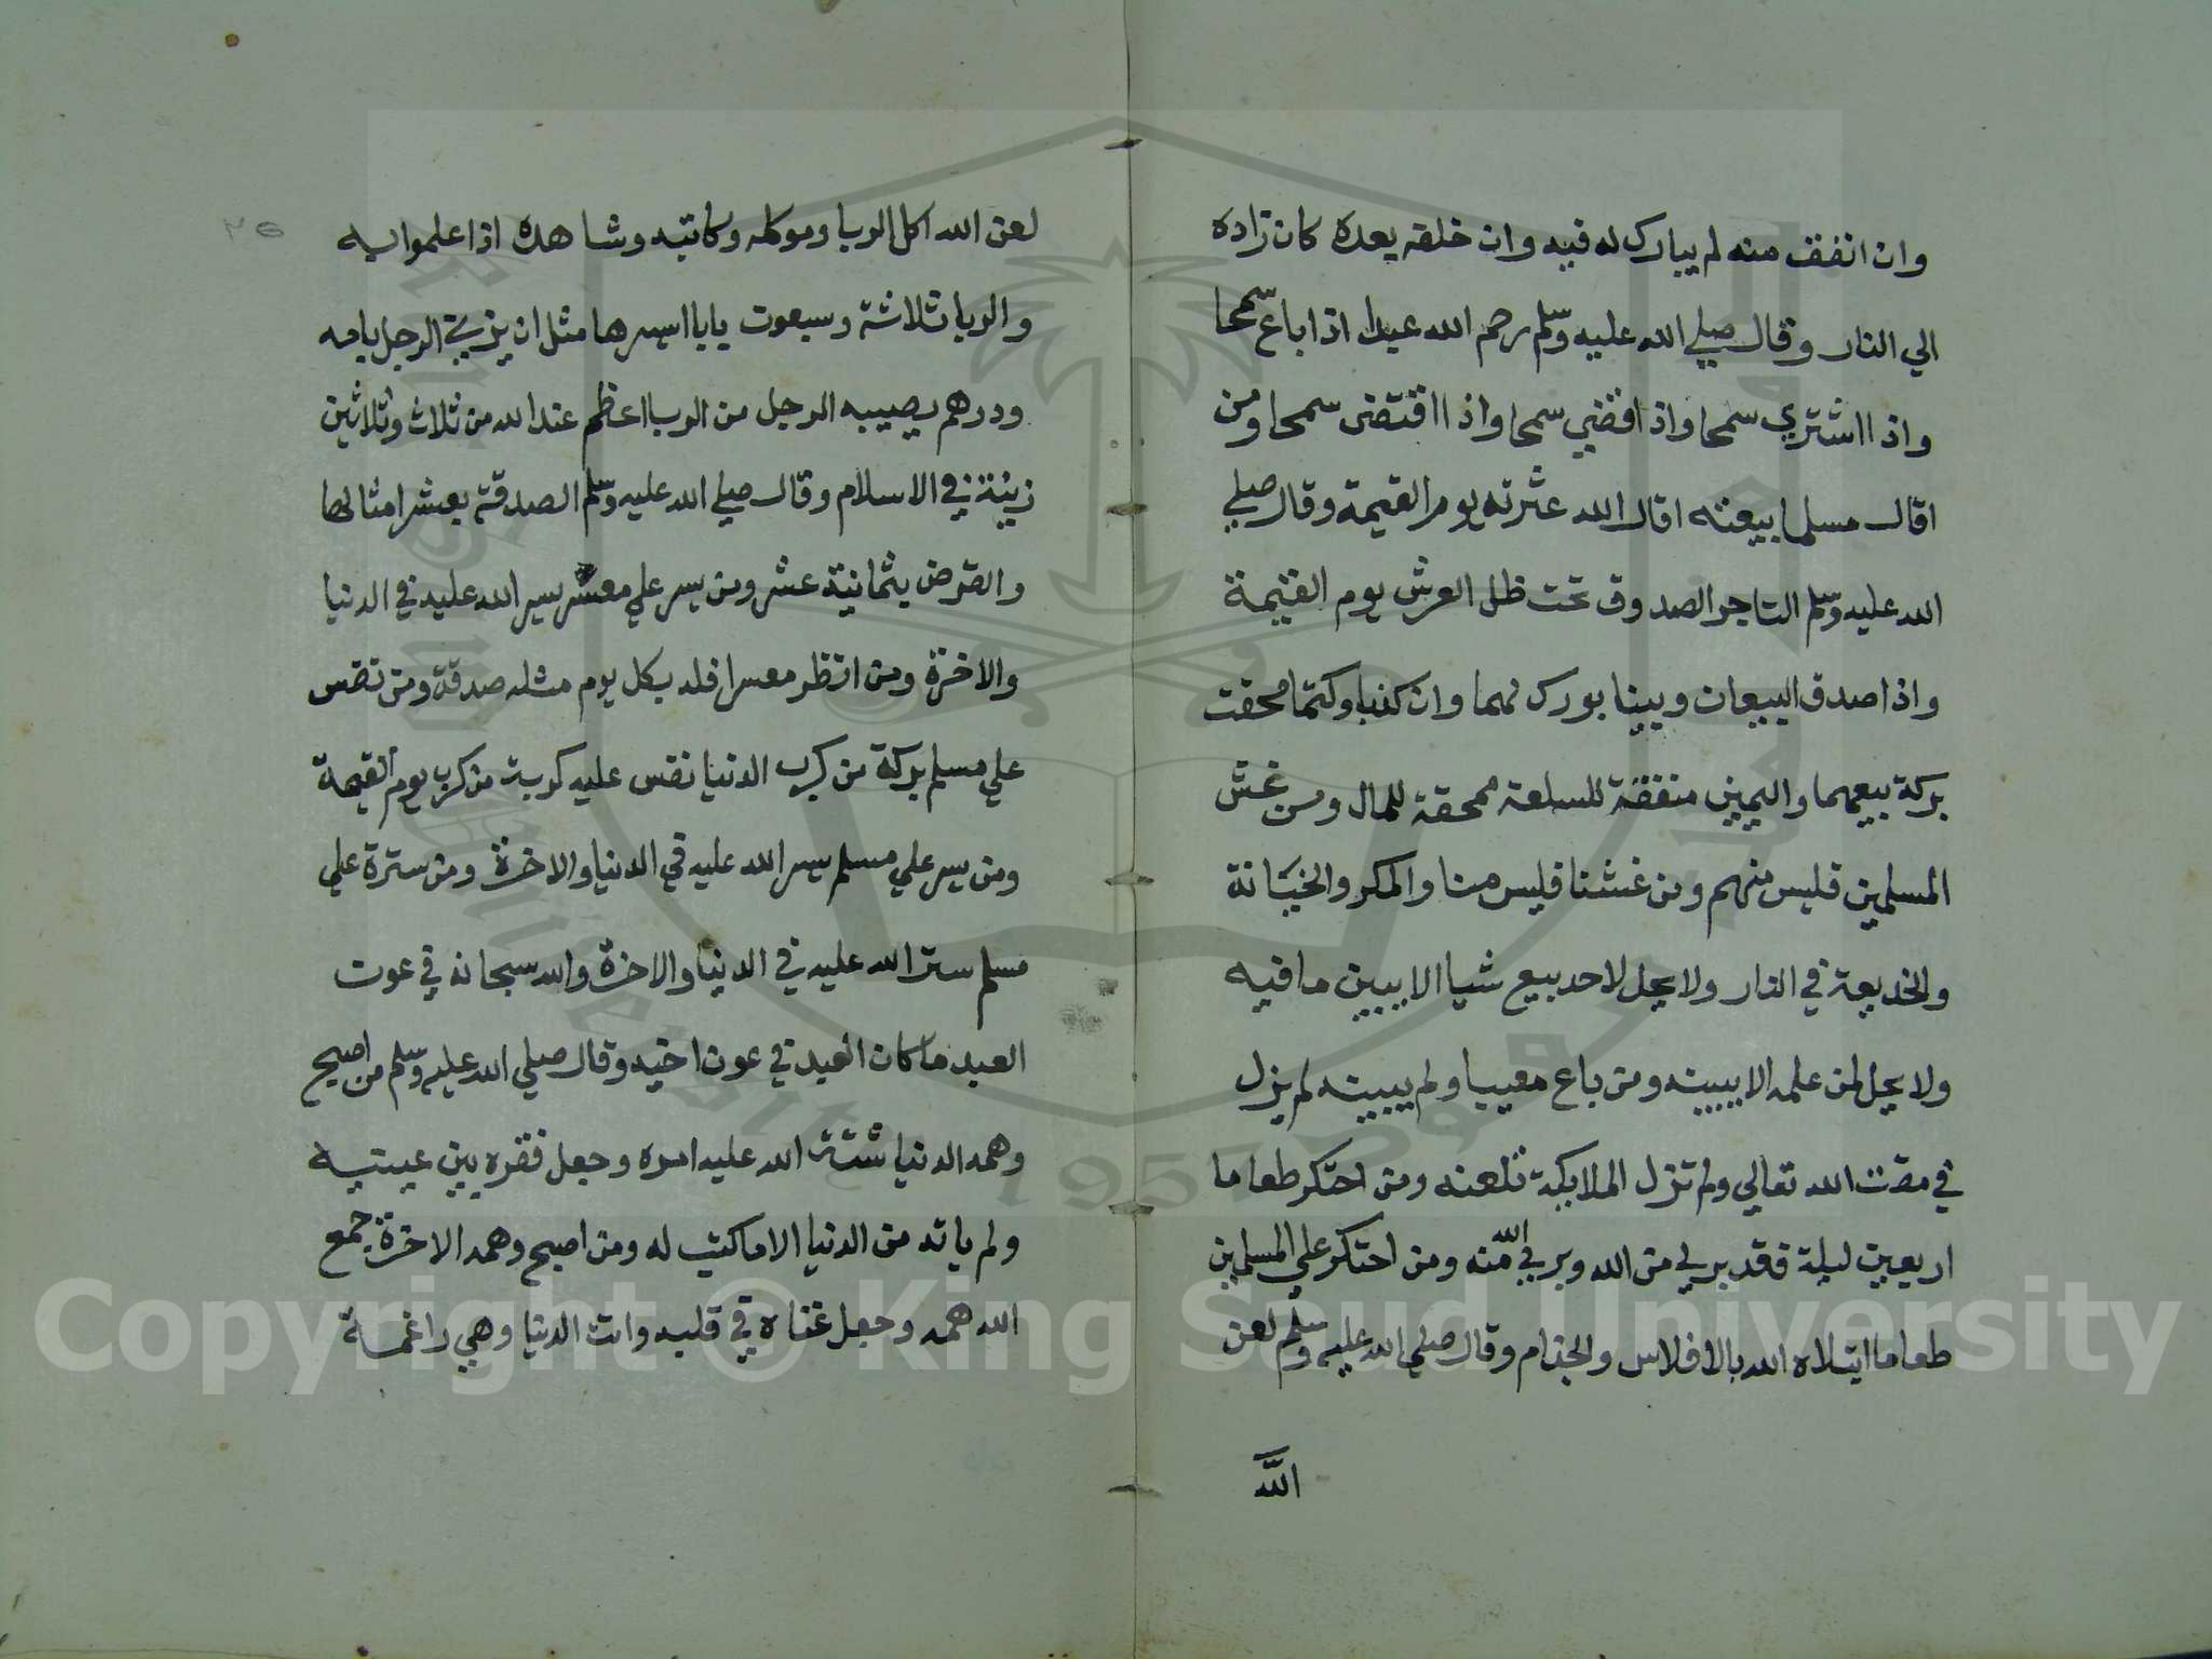 وان انفق منه لم يبارك له فيه وان خلفه بعده كان زاده
الي النار وقال صلي الله عليه وسلم رحم الله عبدا اذا باع سمحا
واذا اشتري سمحا واذا قضي سمحا واذا اقتضى سمحا ومن
اقال مسلما بيعته اقال الله عثرته يوم القيمة وقال صلي
الله عليه وسلم التاجر الصدوق تحت ظل العرش يوم القيمة
واذا صدق البيعان وبينا بورك لهما وان كذبا وكتما محقت
بركة بيعهما واليمين منفقة للسلعة ممحقة للمال ومن غش
المسلمين فليس منهم ومن غشنا فليس منا والمكر والخيانة
والخديعة في النار ولا يحل لاحد يبيع شيا الا يبين ما فيه
ولا يحل لمن علمه الا يبينه ومن باع معيبا ولم يبينه لم يزل
في مقت الله تعالي ولم تزل الملايكة تلعنه ومن احتكر طعاما
اربعين ليلة فقد بري من الله وبري الله منه ومن احتكر علي المسلمين
طعاما ابتلاه الله بالافلاس والجذام وقال صلي الله عليه وسلم لعن
الله
٢٥
لعن الله اكل الربا وموكله وكاتبه وشاهده اذا علموا به
والربا ثلاثة وسبعون بابا ايسرها مثل ان يزني الرجل بامه
ودرهم يصيبه الرجل من الربا اعظم عند الله من ثلاث وثلاثين
زنية في الاسلام وقال صلي الله عليه وسلم الصدقة بعشر امثالها
والقرض بثمانية عشر ومن يسر علي معسر يسر الله عليه في الدنيا
والاخرة ومن انظر معسرا فله بكل يوم مثله صدقة ومن نفس
علي مسلم بركة من كرب الدنيا نفس عليه كربة من كرب يوم القيمة
ومن يسر علي مسلم يسر الله عليه في الدنيا والاخرة ومن سترة علي
مسلم ستر الله عليه في الدنيا والاخرة والله سبحانه في عون
العبد ما كان العبد في عون اخيه وقال صلي الله عليه وسلم من اصبح
وهمه الدنيا شتت الله عليه امره وجعل فقره بين عينيه
ولم ياته من الدنيا الا ما كتب له ومن اصبح وهمه الاخرة جمع
الله همه وجعل غناه في قلبه واتت الدنيا وهي راغمة
Copyright © King Saud University
1957